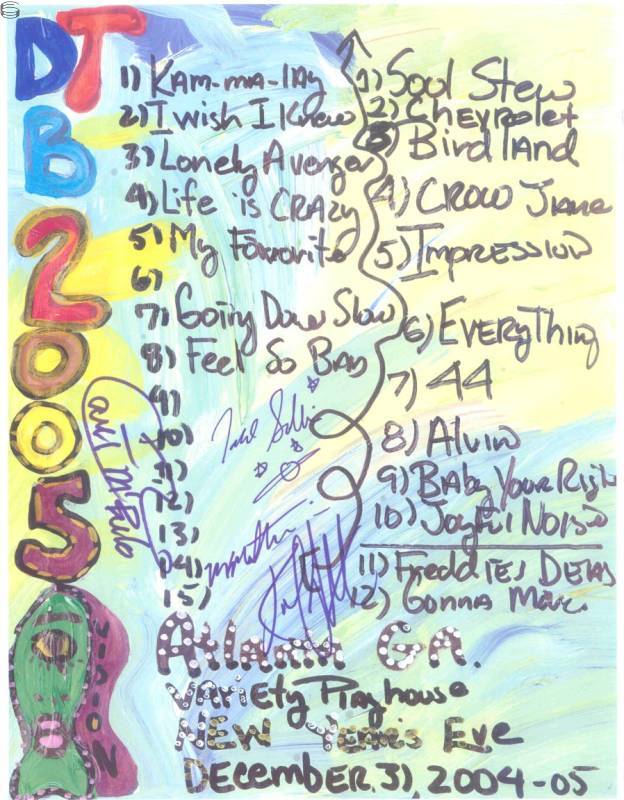 DT
B
2005
VISION
1) KAM-MA-LAY
2) I wish I Knew
3) Lonely Avenger
4) Life is CRAZY
5) My Favorite
6)
7) Going Down Slow
8) Feel So BAD
9)
10)
11)
12)
13)
14)
15)
1) Soul Stew
2) CHEVROLET
3) Birdland
4) CROW Jane
5) IMPRESSION
6) EVERYTHing
7) 44
8) Alvin
9) BAby Your Right
10) Joyful Noise
11) FREDDIES DEAD
12) GONNA Move
Atlanta GA.
VARiety Playhouse
NEW Year's Eve
DECEMBER 31, 2004-05